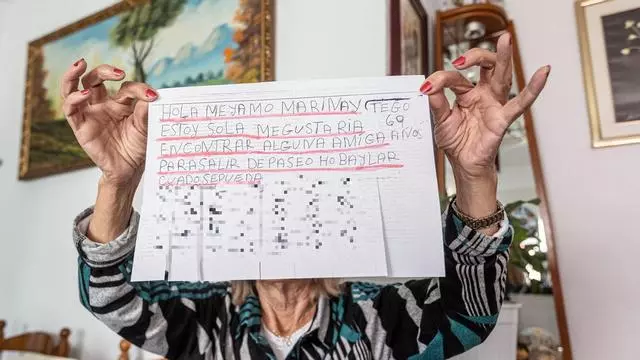 HOLA MEYAMO MARINAY TEGO
ESTOY SOLA MEGUSTARIA 69
ENCONTRAR ALGUNA AMIGA AÑOS
PARASALIR DEPASEO HOBAYLAR
CUADOSEPUEDA